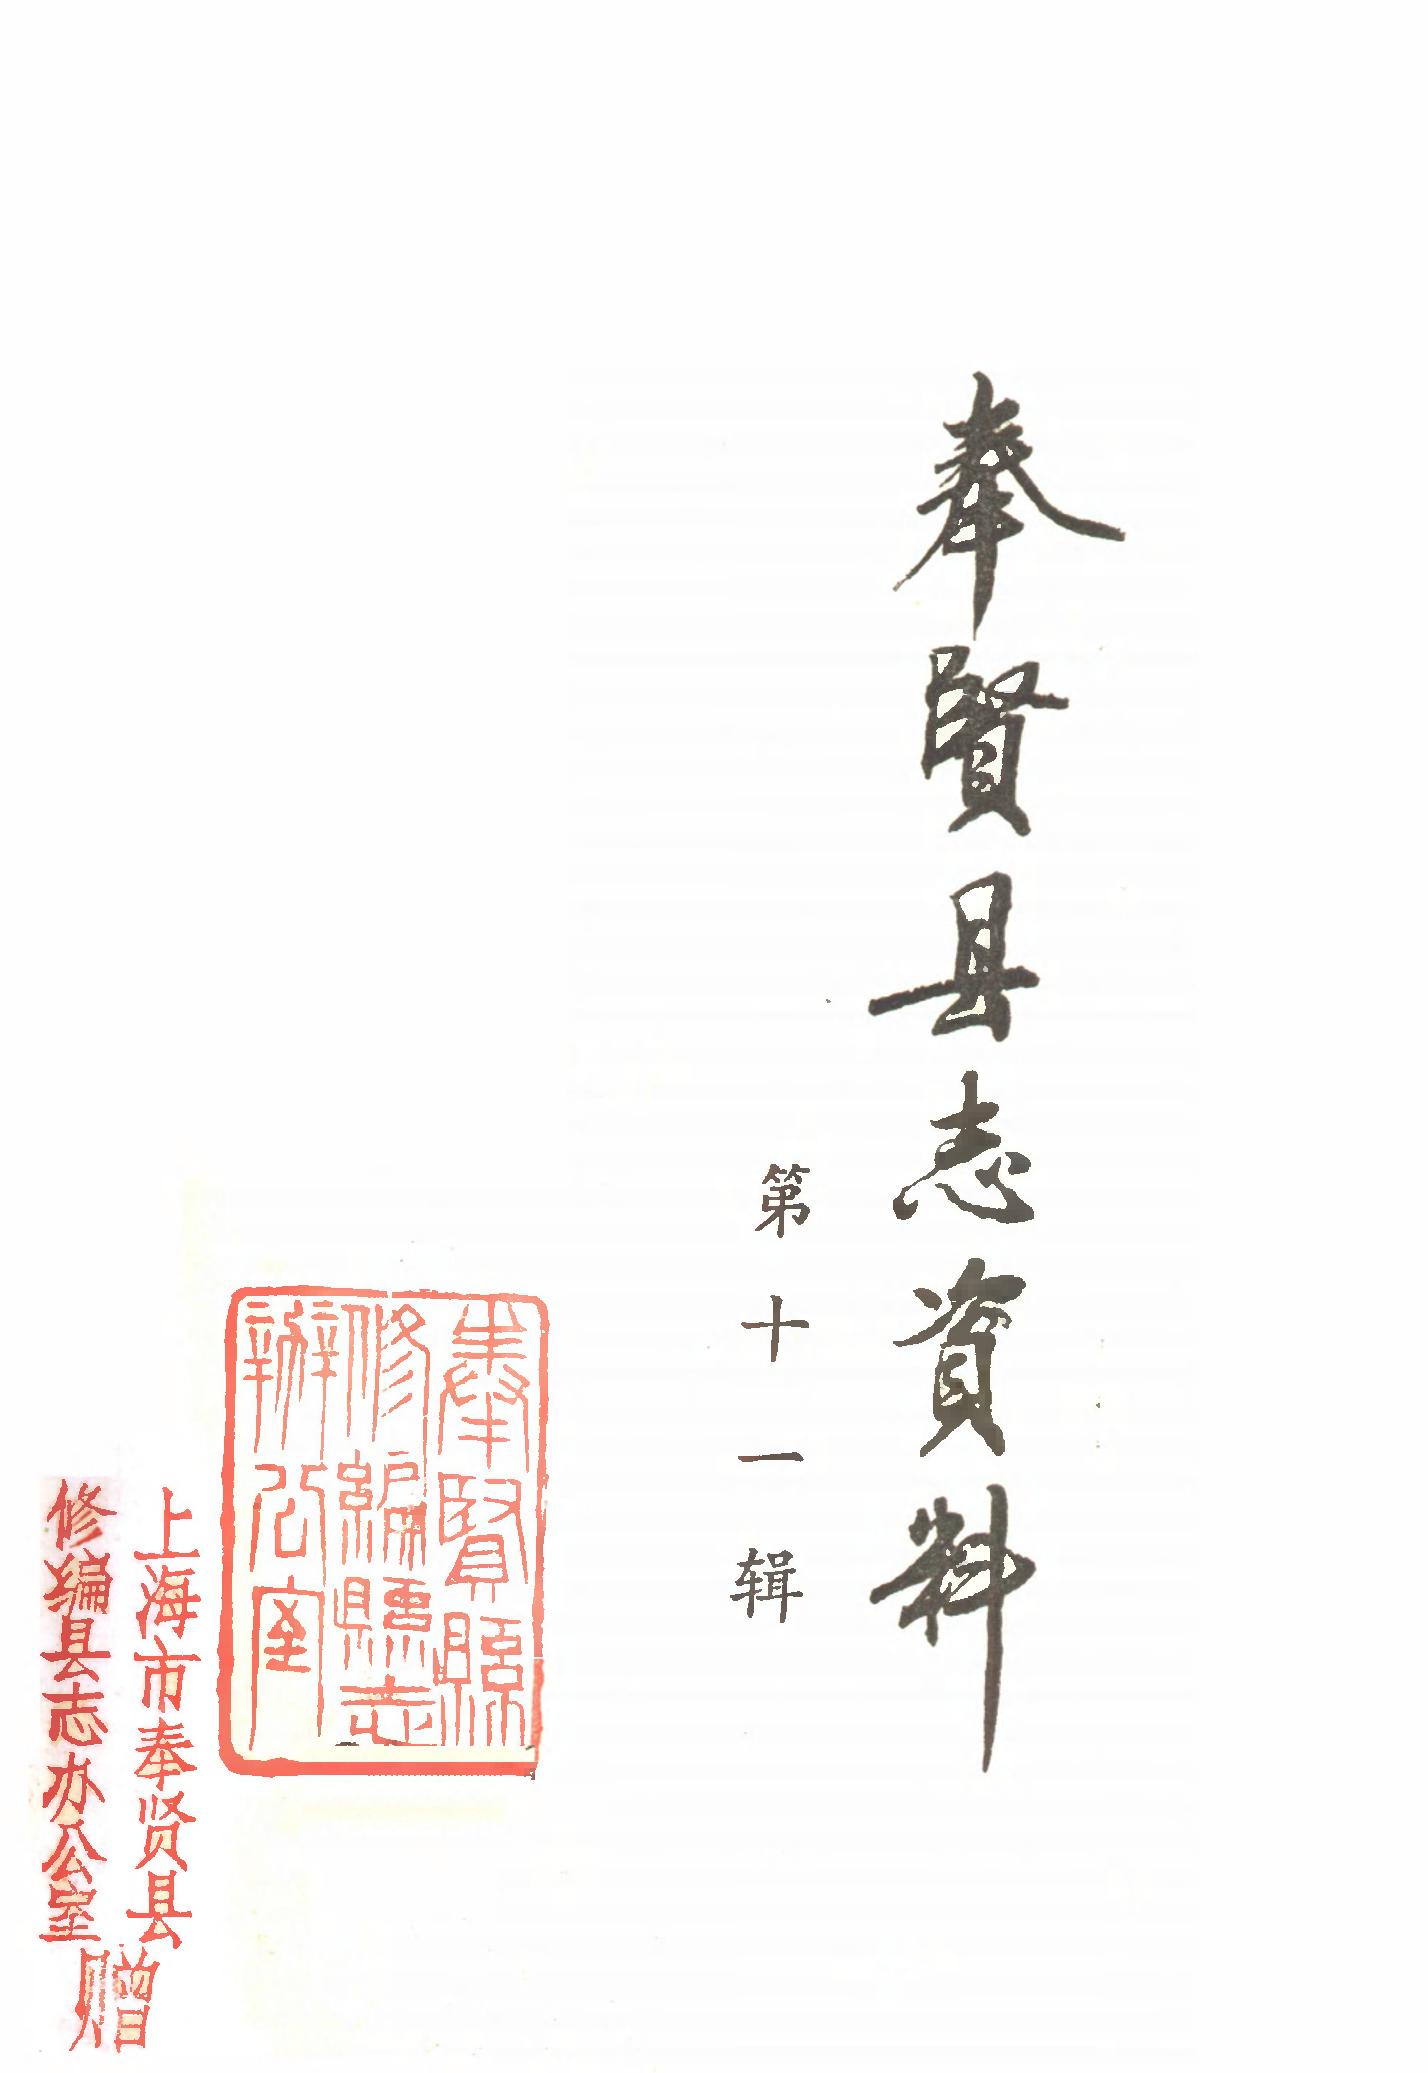 奉賢县志資料
第十一辑
奉賢縣
修編縣志
辦公室
上海市奉贤县
修编县志办公室
赠